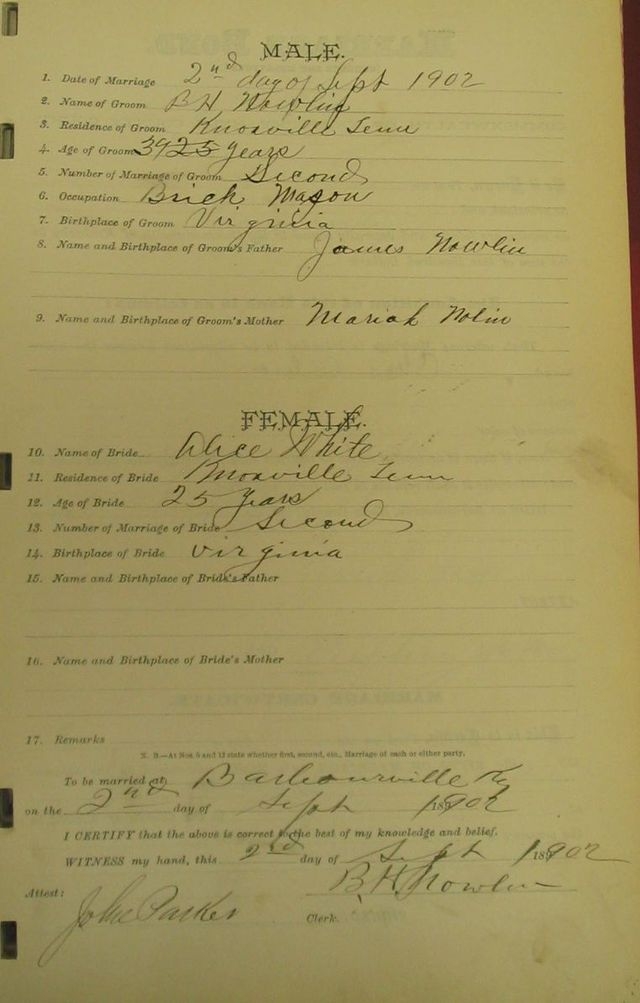 MALE.
1. Date of Marriage 2nd day of Sept 1902
2. Name of Groom B H Nowlin
3. Residence of Groom Knoxville Tenn
4. Age of Groom 39 25 years
5. Number of Marriage of Groom Second
6. Occupation Brick Mason
7. Birthplace of Groom Virginia
8. Name and Birthplace of Groom's Father James Nowlin
9. Name and Birthplace of Groom's Mother Mariah Nolin
FEMALE.
10. Name of Bride Alice White
11. Residence of Bride Knoxville Tenn
12. Age of Bride 25 years
13. Number of Marriage of Bride Second
14. Birthplace of Bride Virginia
15. Name and Birthplace of Bride's Father
16. Name and Birthplace of Bride's Mother
17. Remarks
N. B.—At Nos. 5 and 13 state whether first, second, etc., Marriage of each or either party.
To be married at Barbourville Ky
on the 2nd day of Sept 1902
I CERTIFY that the above is correct to the best of my knowledge and belief.
WITNESS my hand, this 2nd day of Sept 1902
B. H. Nowlin
Attest:
John Parker Clerk.